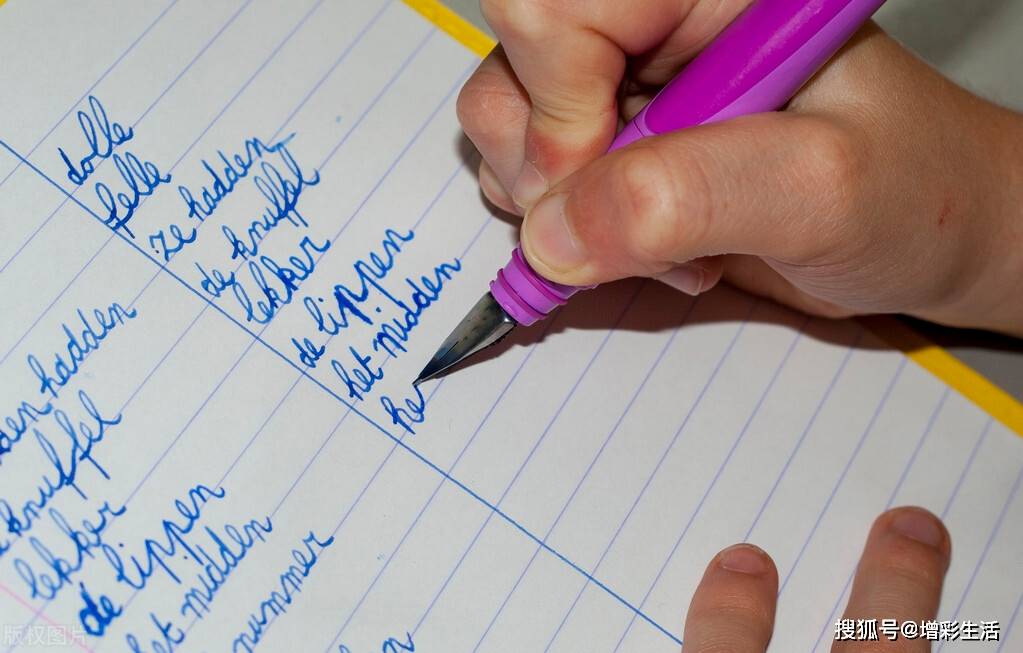 dolle
felle
ze hadden
de knuffel
lekker
de lippen
het midden
he
den hadden
knuffel
lekker
de lippen
het midden
nummer
版权图片
搜狐号@增彩生活